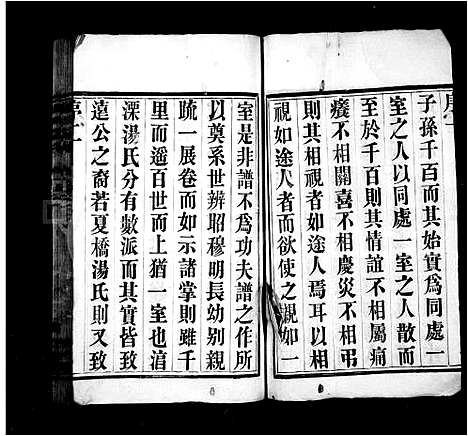 子孫千百而其始實爲同處一
室之人以同處一室之人散而
至於千百則其情誼不相屬痛
癢不相關喜不相慶災不相弔
則其相視者如途人焉耳以相
視如途人者而欲使之覩如一
室是非譜不爲功夫譜之作所
以奠系世辨昭穆明長幼別親
疏一展卷而如示諸掌則雖千
里而遥百世而上猶一室也湻
溧湯氏分有數派而其實皆致
遠公之裔若夏橋湯氏則又致